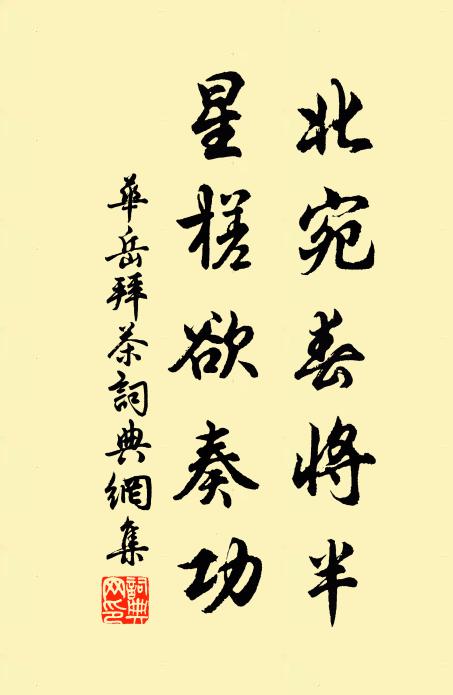 北宛春將半
星槎欲奏功
華岳拜茶詞典網集
詞典网印